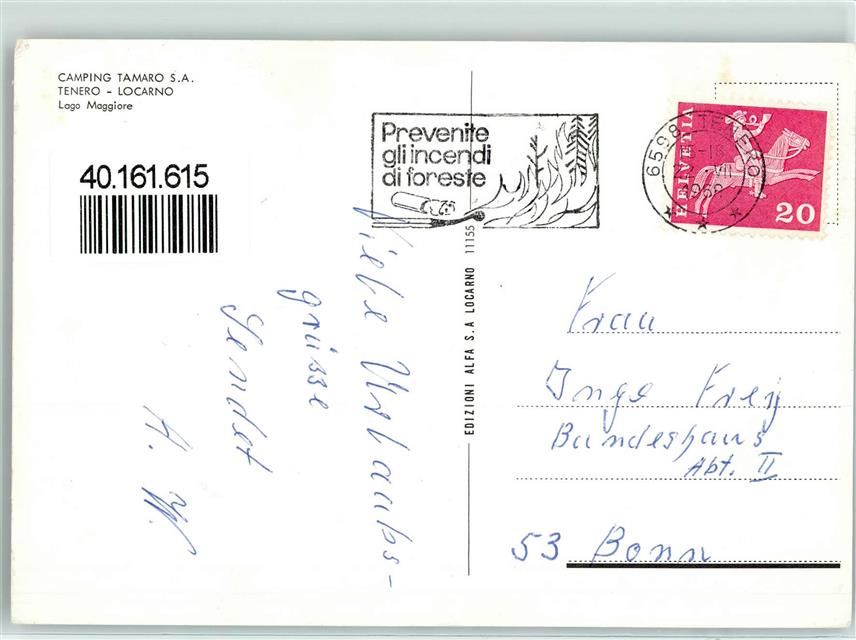 CAMPING TAMARO S.A.
TENERO - LOCARNO
Lago Maggiore
40.161.615
Prevenite
gli incendi
di foreste
6598 TENERO
1968
HELVETIA
20
EDIZIONI ALFA S.A LOCARNO 11155
Liebe Urlaubs-
grüsse
sendet
A. W.
Frau
Inge Frey
Bundeshaus
Abt. II
53 Bonn